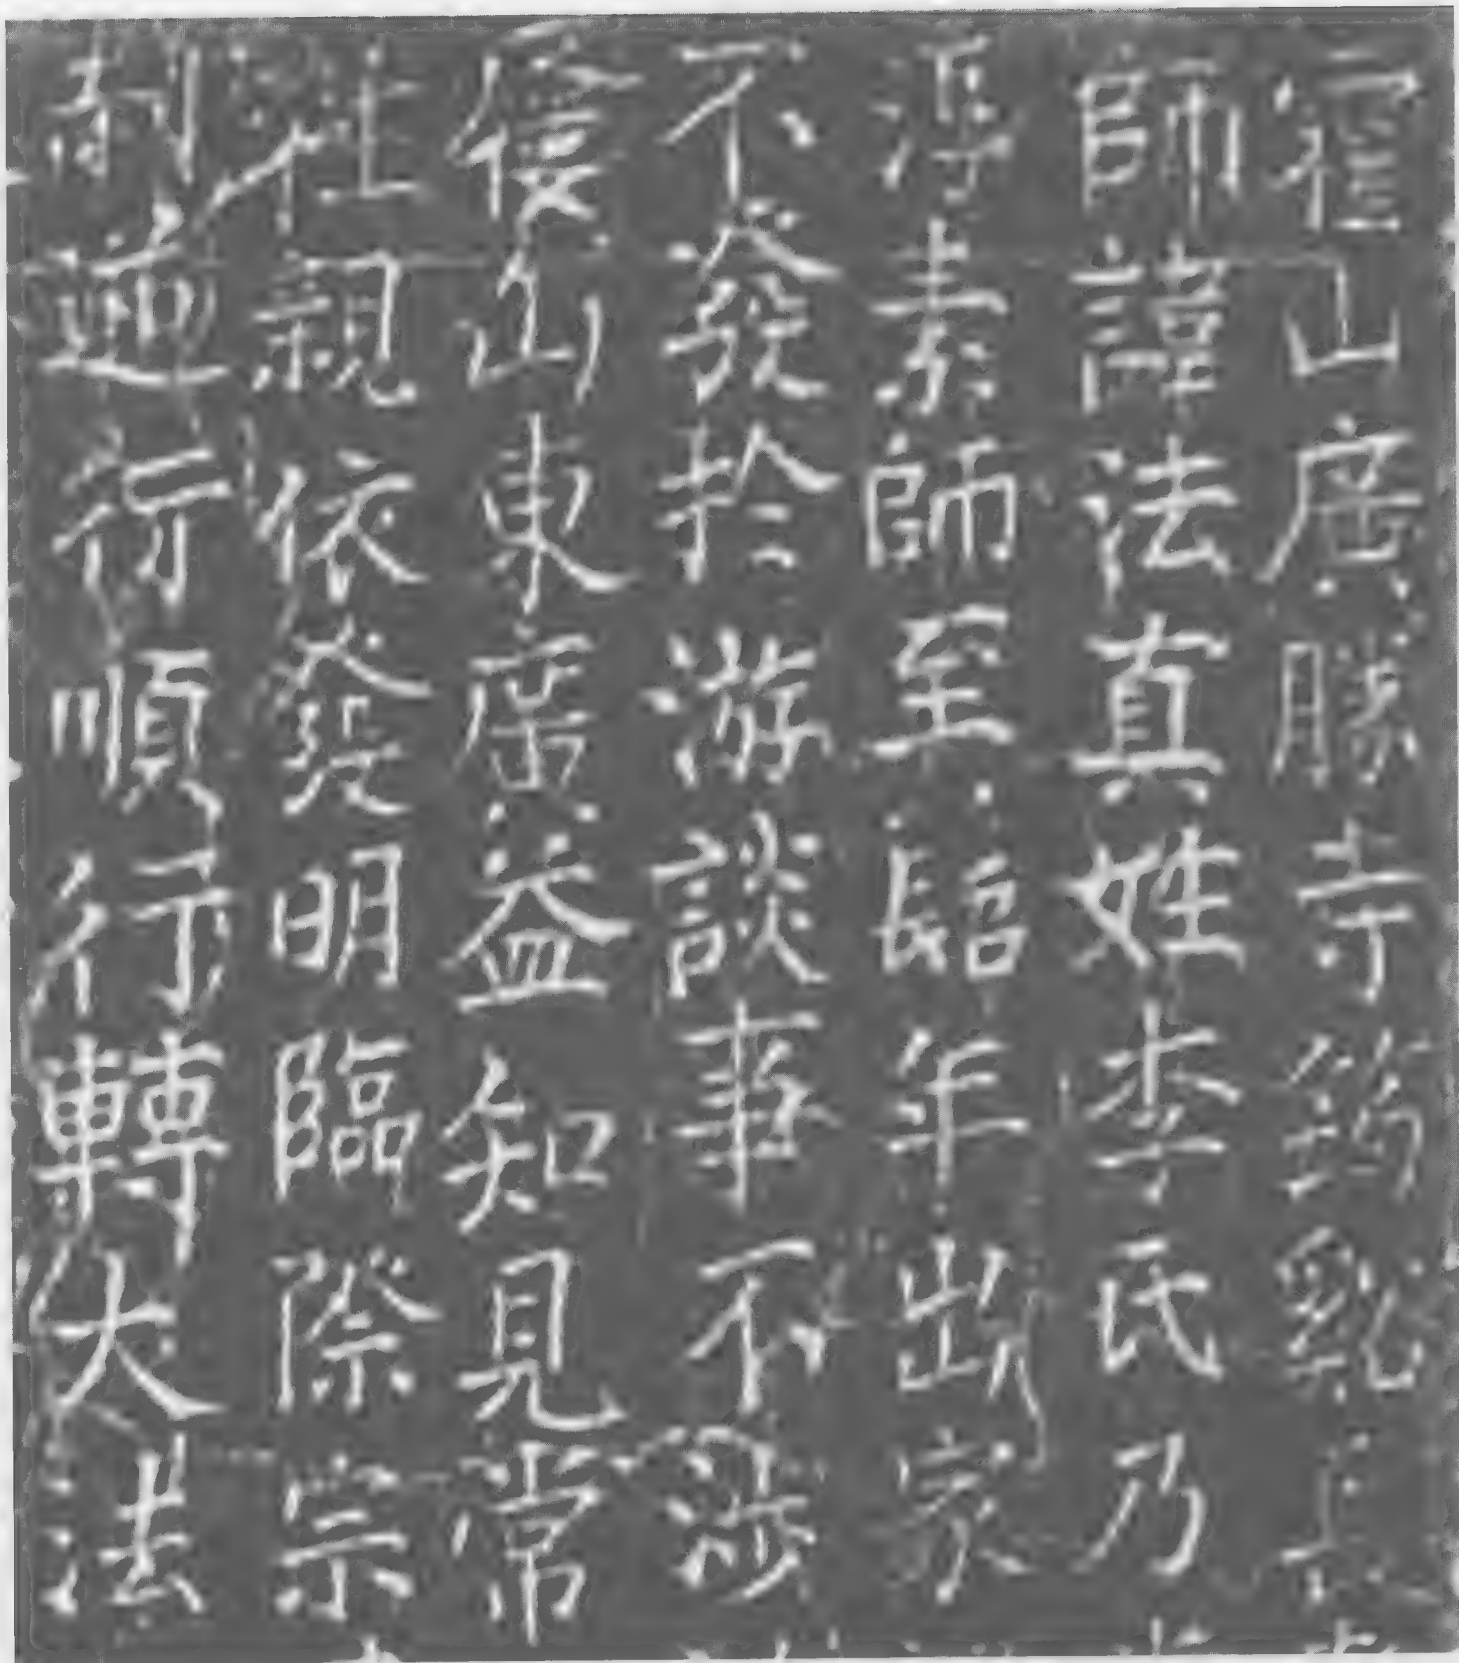 山廣勝寺
師諱法真姓李氏乃
淳素師至髫年出家
不發於游談事不涉
山東廣益知見常
往親依發明臨際宗
制逆行順行轉大法